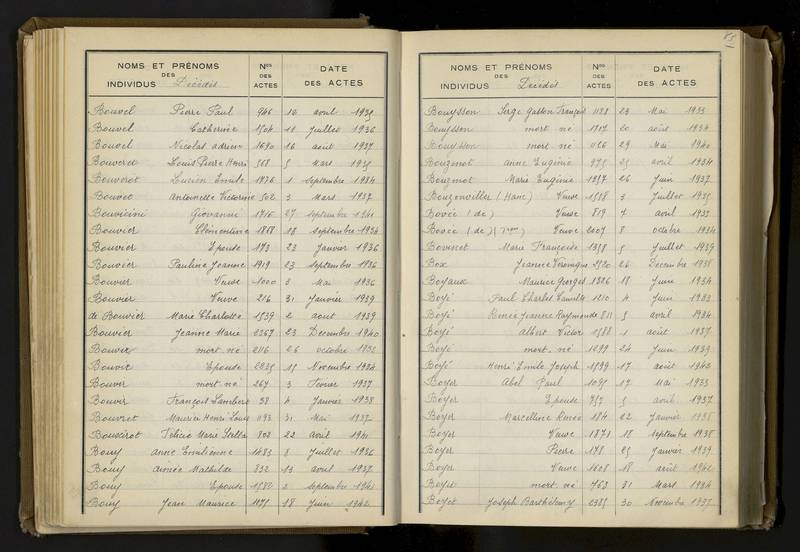 NOMS ET PRÉNOMS
DES
INDIVIDUS Décédés
Nos
DES
ACTES
DATE
DES ACTES
Bouvel Pierre Paul 946 10 avril 1935
Bouvel Catherine 1504 11 Juillet 1936
Bouvel Nicolas adrien 1690 16 août 1937
Bouveret Louis Pierre Henri 568 5 Mars 1935
Bouverot Lucien Emile 1776 1 Septembre 1934
Bouvet Antoinette Victorine 502 3 Mars 1937
Bouvicini Giovanni 1716 27 septembre 1941
Bouvier Clémentine 1868 18 Septembre 1934
Bouvier Epouse 173 23 Janvier 1936
Bouvier Pauline Jeanne 1919 23 septembre 1936
Bouvier Veuve 1000 8 Mai 1936
Bouvier Veuve 216 31 Janvier 1939
de Bouvier Marie Charlotte 1539 2 août 1939
Bouvier Jeanne Marie 2367 23 Decembre 1940
Bouvier mort né 2116 26 octobre 1935
Bouvier Epouse 2235 15 Novembre 1934
Bouvier mort né 267 3 Février 1937
Bouvier François Lambert 38 4 Janvier 1938
Bouvret Maurice Henri Louis 1193 31 Mai 1937
Felicie Marie Stella 802 22 avril 1941
Bouy Anne Emilienne 1483 8 Juillet 1936
Bouy Aimée Mathilde 832 13 avril 1937
Bouy Epouse 1582 2 septembre 1941
Bouy Jean Maurice 1275 18 Juin 1942
NOMS ET PRÉNOMS
DES
INDIVIDUS Décédés
Nos
DES
ACTES
DATE
DES ACTES
Bouysson Serge Gaston François 1128 23 Mai 1933
Bouysson mort né 1717 20 août 1934
Bouysson mort né 1126 29 Mai 1940
Bouzmot anne Eugénie 975 25 avril 1934
Bouzmot Marie Eugénie 1257 26 Juin 1937
Bouzonviller (Ham) Veuve 1538 3 Juillet 1935
Bovée (de) Veuve 819 7 avril 1933
Bovée (de) Veuve 2007 8 octobre 1934
Bovinet Marie Françoise 1358 5 Juillet 1939
Box Jeanne Véronique 2520 26 Décembre 1938
Boyaux Maurice Georges 1326 18 Juin 1934
Boyé Paul Charles Camille 1210 4 Juin 1933
Boyé Renée Jeanne Raymonde 811 5 avril 1934
Boyé Albert Victor 1588 1 août 1937
Boyé mort né 1299 24 Juin 1939
Boyé Henri Emile Joseph 1599 17 août 1942
Boyer Abel Paul 1095 17 Mai 1933
Boyer Epouse 757 5 avril 1937
Boyer Marcelline Renée 184 22 Janvier 1938
Boyer Veuve 1871 18 septembre 1938
Boyer Pierre 178 25 Janvier 1939
Boyer Veuve 1608 18 août 1942
Boyet mort né 763 31 Mars 1934
Boyet Joseph Barthélemy 2385 30 Novembre 1937